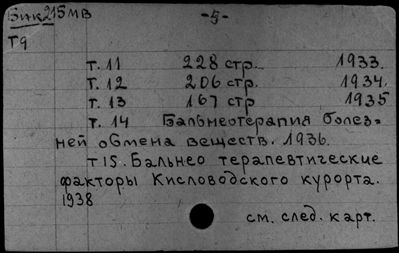 Бик215МВ -5-
Т9
т. 11 228 стр. 1933.
т. 12 206 стр. 1934.
т. 13 167 стр 1935
т. 14 Бальнеотерапия болез-
ней обмена веществ. 1936.
т 15. Бальнео терапевтические
факторы Кисловодского курорта.
1938
см. след. карт.